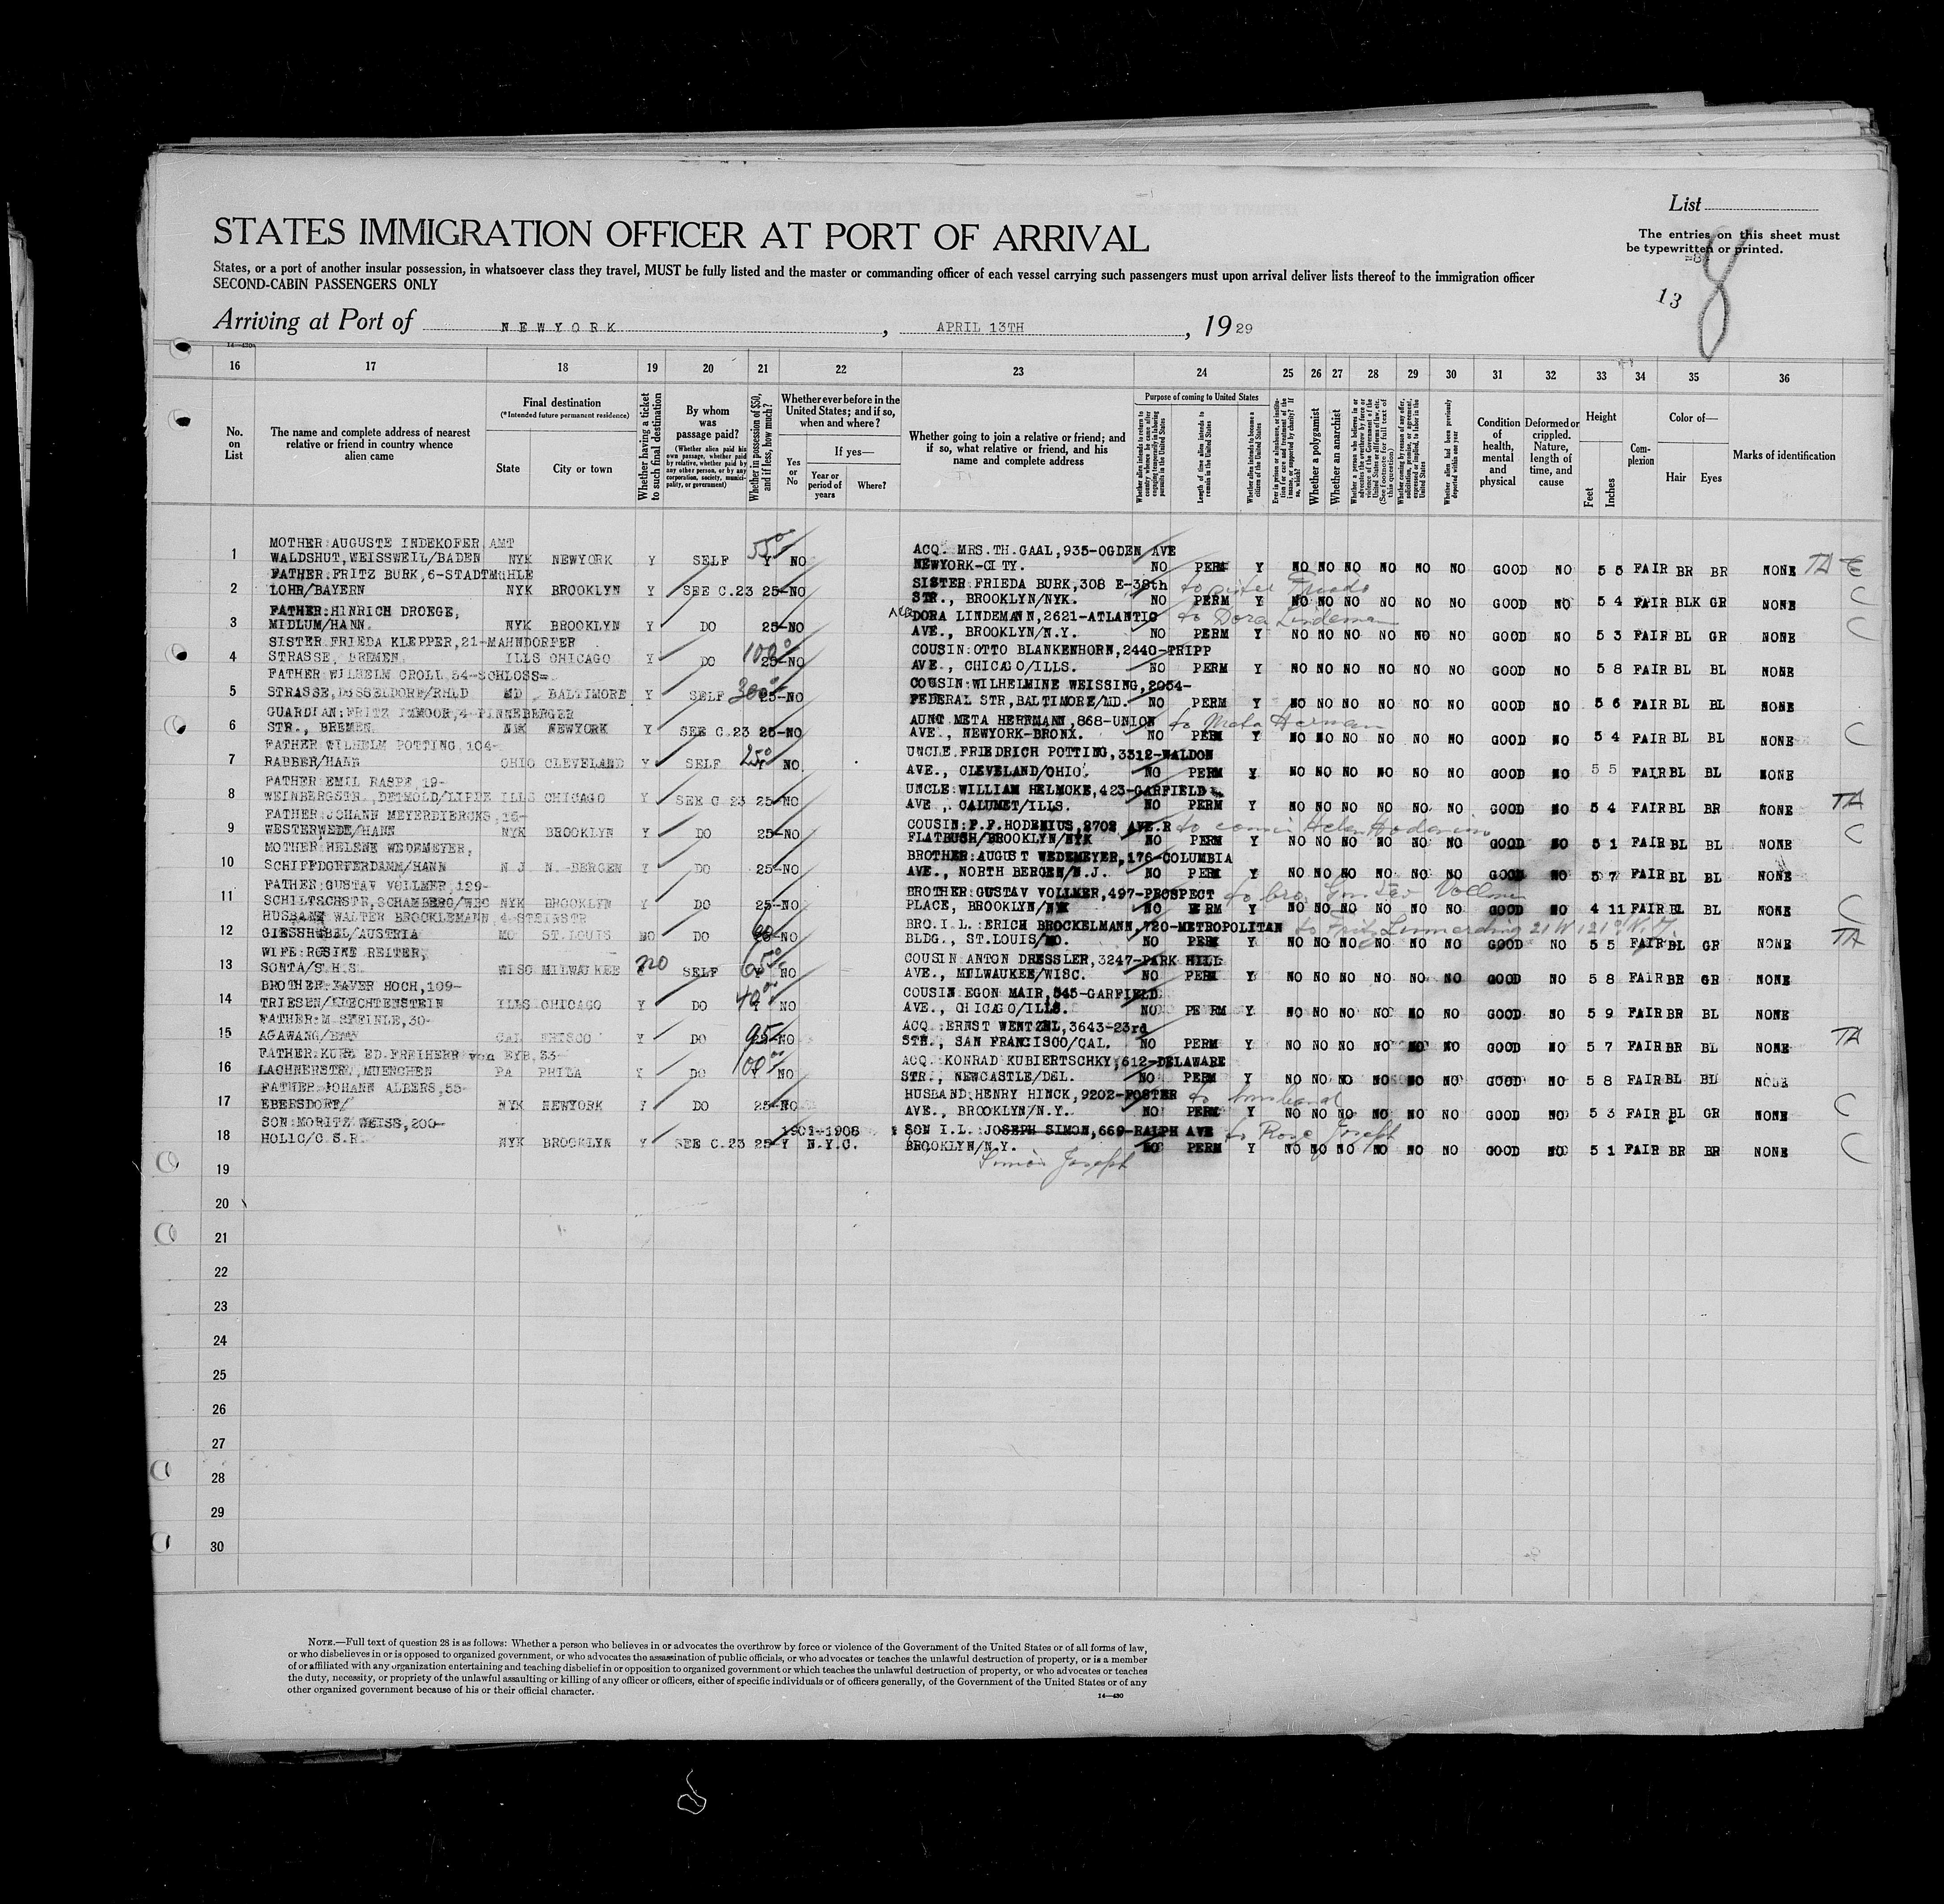 List
The entries on this sheet must
be typewritten or printed.
13
8
STATES IMMIGRATION OFFICER AT PORT OF ARRIVAL
States, or a port of another insular possession, in whatsoever class they travel, MUST be fully listed and the master or commanding officer of each vessel carrying such passengers must upon arrival deliver lists thereof to the immigration officer
SECOND-CABIN PASSENGERS ONLY
Arriving at Port of NEWYORK, APRIL 13TH, 1929
16 17 18 19 20 21 22 23 24 25 26 27 28 29 30 31 32 33 34 35 36
No. on List
The name and complete address of nearest relative or friend in country whence alien came
Final destination
(*Intended future permanent residence)
State
City or town
Whether having a ticket to such final destination
By whom was passage paid?
(Whether alien paid his own passage, whether paid by relative, whether paid by any other person, or by any corporation, society, municipality, or government)
Whether in possession of $50, and if less, how much?
Whether ever before in the United States; and if so, when and where?
Yes or No
If yes—
Year or period of years
Where?
Whether going to join a relative or friend; and if so, what relative or friend, and his name and complete address
Purpose of coming to United States
Length of time alien intends to remain in the United States
Whether alien intends to become a citizen of the United States
Whether a polygamist
Whether an anarchist
Condition of health, mental and physical
Deformed or crippled. Nature, length of time, and cause
Height
Feet
Inches
Complexion
Color of—
Hair
Eyes
Marks of identification
1 MOTHER:AUGUSTE INDEKOFER AMT ACQ. MRS.TH.GAAL,935-OGDEN AVE
WALDSHUT,WEISSWEIL/BADEN NYK NEWYORK Y SELF Y NO NEWYORK-CITY. NO PERM Y NO NO NO NO NO NO GOOD NO 5 5 FAIR BR BR NONE TA
2 FATHER:FRITZ BURK,6-STADTMUHLE SISTER:FRIEDA BURK,308 E-38th to sister Frieda
LOHR/BAYERN NYK BROOKLYN Y SEE C.23 25-NO STR., BROOKLYN/NYK. NO PERM Y NO NO NO NO NO NO GOOD NO 5 4 FAIR BLK GR NONE C
3 FATHER:HINRICH DROEGE, ACQ DORA LINDEMANN,2621-ATLANTIC to Dora Lindeman
MIDLUM/HANN. NYK BROOKLYN Y DO 25-NO AVE., BROOKLYN/N.Y. NO PERM Y NO NO NO NO NO NO GOOD NO 5 3 FAIR BL GR NONE C
4 SISTER FRIEDA KLEPPER,21-MAHNDORFER COUSIN:OTTO BLANKENHORN,2440-TRIPP
STRASSE, BREMEN. ILLS CHICAGO Y DO 100 25-NO AVE., CHICAGO/ILLS. NO PERM Y NO NO NO NO NO NO GOOD NO 5 8 FAIR BL BL NONE
5 FATHER WILHELM CROLL,54-SCHLOSS= COUSIN:WILHELMINE WEISSING,2054-
STRASSE,DUSSELDORF/RHLD MD BALTIMORE Y SELF 300 25-NO FEDERAL STR,BALTIMORE/MD. NO PERM Y NO NO NO NO NO NO GOOD NO 5 6 FAIR BL BL NONE
6 GUARDIAN:FRITZ IMMOOR,4-PINNEBERGER AUNT META HERRMANN,868-UNION to Meta Herman
STR., BREMEN. NYK NEWYORK Y SEE C.23 25-NO AVE., NEWYORK-BRONX. NO PERM Y NO NO NO NO NO NO GOOD NO 5 4 FAIR BL BL NONE C
7 FATHER WILHELM POTTING,104- UNCLE.FRIEDRICH POTTING,3312-WALDON
RABBER/HANN OHIO CLEVELAND Y SELF 250 Y NO AVE., CLEVELAND/OHIO. NO PERM Y NO NO NO NO NO NO GOOD NO 5 5 FAIR BL BL NONE
8 FATHER EMIL RASPE,19- UNCLE:WILLIAM HELMCKE,423-GARFIELD
WEINBERGSTR.,DETMOLD/LIPPE ILLS CHICAGO Y SEE C 23 25-NO AVE., CALUMET/ILLS. NO PERM Y NO NO NO NO NO NO GOOD NO 5 4 FAIR BL BR NONE TA
9 FATHER:JOHANN MEYERDIERCKS,16- COUSIN:P.F.HODENIUS,2702 AVE.R to cousin Helen Hodenius
WESTERWEDE/HANN NYK BROOKLYN Y DO 25-NO FLATBUSH/BROOKLYN/NYK NO PERM Y NO NO NO NO NO NO GOOD NO 5 1 FAIR BL BL NONE C
10 MOTHER HELENE WEDEMEYER, BROTHER:AUGUST WEDEMEYER,176-COLUMBIA
SCHIFFDORFERDAMM/HANN N J N.-BERGEN Y DO 25-NO AVE., NORTH BERGEN/N.J. NO PERM Y NO NO NO NO NO NO GOOD NO 5 7 FAIR BL BL NONE
11 FATHER:GUSTAV VOLLMER,129- BROTHER:GUSTAV VOLLMER,497-PROSPECT to bro. Gustav Vollmer
SCHILTACHSTR,SCHAMBERG/WBG NYK BROOKLYN Y DO 25-NO PLACE, BROOKLYN/NYK NO PERM Y NO NO NO NO NO NO GOOD NO 4 11 FAIR BL BL NONE C
12 HUSBAND WALTER BROCKLEMANN,4 STEINSTR BRO.I.L.:ERICH BROCKELMANN,720-METROPOLITAN
GIESSHUBEL/AUSTRIA MO ST.LOUIS NO DO NO BLDG., ST.LOUIS/MO. NO PERM Y NO NO NO NO NO NO GOOD NO 5 5 FAIR BL GR NONE TA
13 WIFE:ROSINE REITER, COUSIN ANTON DRESSLER,3247-PARK HILL
SONTA/S.H.S. WISC MILWAUKEE no SELF NO AVE., MILWAUKEE/WISC. NO PERM Y NO NO NO NO NO NO GOOD NO 5 8 FAIR BR GR NONE
14 BROTHER:XAVER HOCH,109- COUSIN EGON MAIR,545-GARFIELD
TRIESEN/LIECHTENSTEIN ILLS CHICAGO Y DO 40 NO AVE., CHICAGO/ILLS. NO PERM Y NO NO NO NO NO NO GOOD NO 5 9 FAIR BR BL NONE
15 FATHER:M STEINLE,30- ACQ.:ERNST WENTZEL,3643-23rd
AGAWANG/ CAL FRISCO Y DO 95 25-NO STR., SAN FRANCISCO/CAL. NO PERM Y NO NO NO NO NO NO GOOD NO 5 7 FAIR BR BL NONE TA
16 FATHER:KURT ED.FREIHERR von EYB,33- ACQ. KONRAD KUBIERTSCHKY,612-DELAWARE
LACHNERSTR.,MUENCHEN PA PHILA Y DO 100 Y NO STR., NEWCASTLE/DEL. NO PERM Y NO NO NO NO NO NO GOOD NO 5 8 FAIR BL BL NONE
17 FATHER:JOHANN ALBERS,55- HUSBAND:HENRY HINCK,9202-FOSTER to husband
EBERSDORF/ NYK NEWYORK Y DO 25-NO AVE., BROOKLYN/N.Y. NO PERM Y NO NO NO NO NO NO GOOD NO 5 3 FAIR BL GR NONE C
18 SON:MORITZ WEISS,200- 1901-1908 SON I.L.:JOSEPH SIMON,669-RALPH AVE to Rose Joseph
HOLIC/C.S.R. NYK BROOKLYN Y SEE C.23 25 Y N.Y.C. BROOKLYN/N.Y. NO PERM Y NO NO NO NO NO NO GOOD NO 5 1 FAIR BR BR NONE C
Simon Joseph
19
20
21
22
23
24
25
26
27
28
29
30
NOTE.—Full text of question 28 is as follows: Whether a person who believes in or advocates the overthrow by force or violence of the Government of the United States or of all forms of law,
or who disbelieves in or is opposed to organized government, or who advocates the assassination of public officials, or who advocates or teaches the unlawful destruction of property, or is a member
of or affiliated with any organization entertaining and teaching disbelief in or opposition to organized government or which teaches the unlawful destruction of property, or who advocates or teaches
the duty, necessity, or propriety of the unlawful assaulting or killing of any officer or officers, either of specific individuals or of officers generally, of the Government of the United States or of any
other organized government because of his or their official character.
14—430